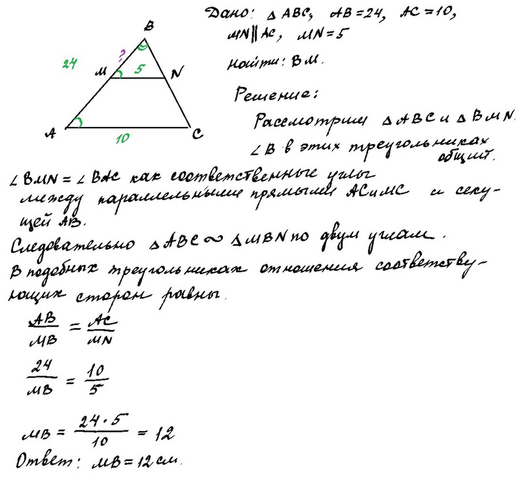 Дано: △ ABC, AB = 24, AC = 10,
MN || AC, MN = 5
найти: BM.
B
?
24
M
5
N
A
10
C
Решение:
Рассмотрим △ ABC и △ BMN.
∠B в этих треугольниках
общий.
∠BMN = ∠BAC как соответственные углы
между параллельными прямыми AC и MC и секу-
щей AB.
Следовательно △ ABC ∾ △ MBN по двум углам.
В подобных треугольниках отношения соответству-
ющих сторон равны.
AB/MB = AC/MN
24/MB = 10/5
MB = 24·5/10 = 12
Ответ: MB = 12 см.